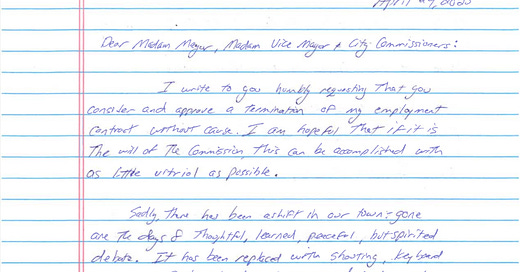 April
Dear Madam Mayor, Madam Vice Mayor & City Commissioners:
I write to you humbly requesting that you
consider and approve a termination of my employment
contract without cause. I am hopeful that if it is
the will of the Commission, this can be accomplished with
as little vitriol as possible.
Sadly, there has been a shift in our town; gone
are the days of thoughtful, learned, peaceful, but spirited
debate. It has been replaced with shouting, keyboard